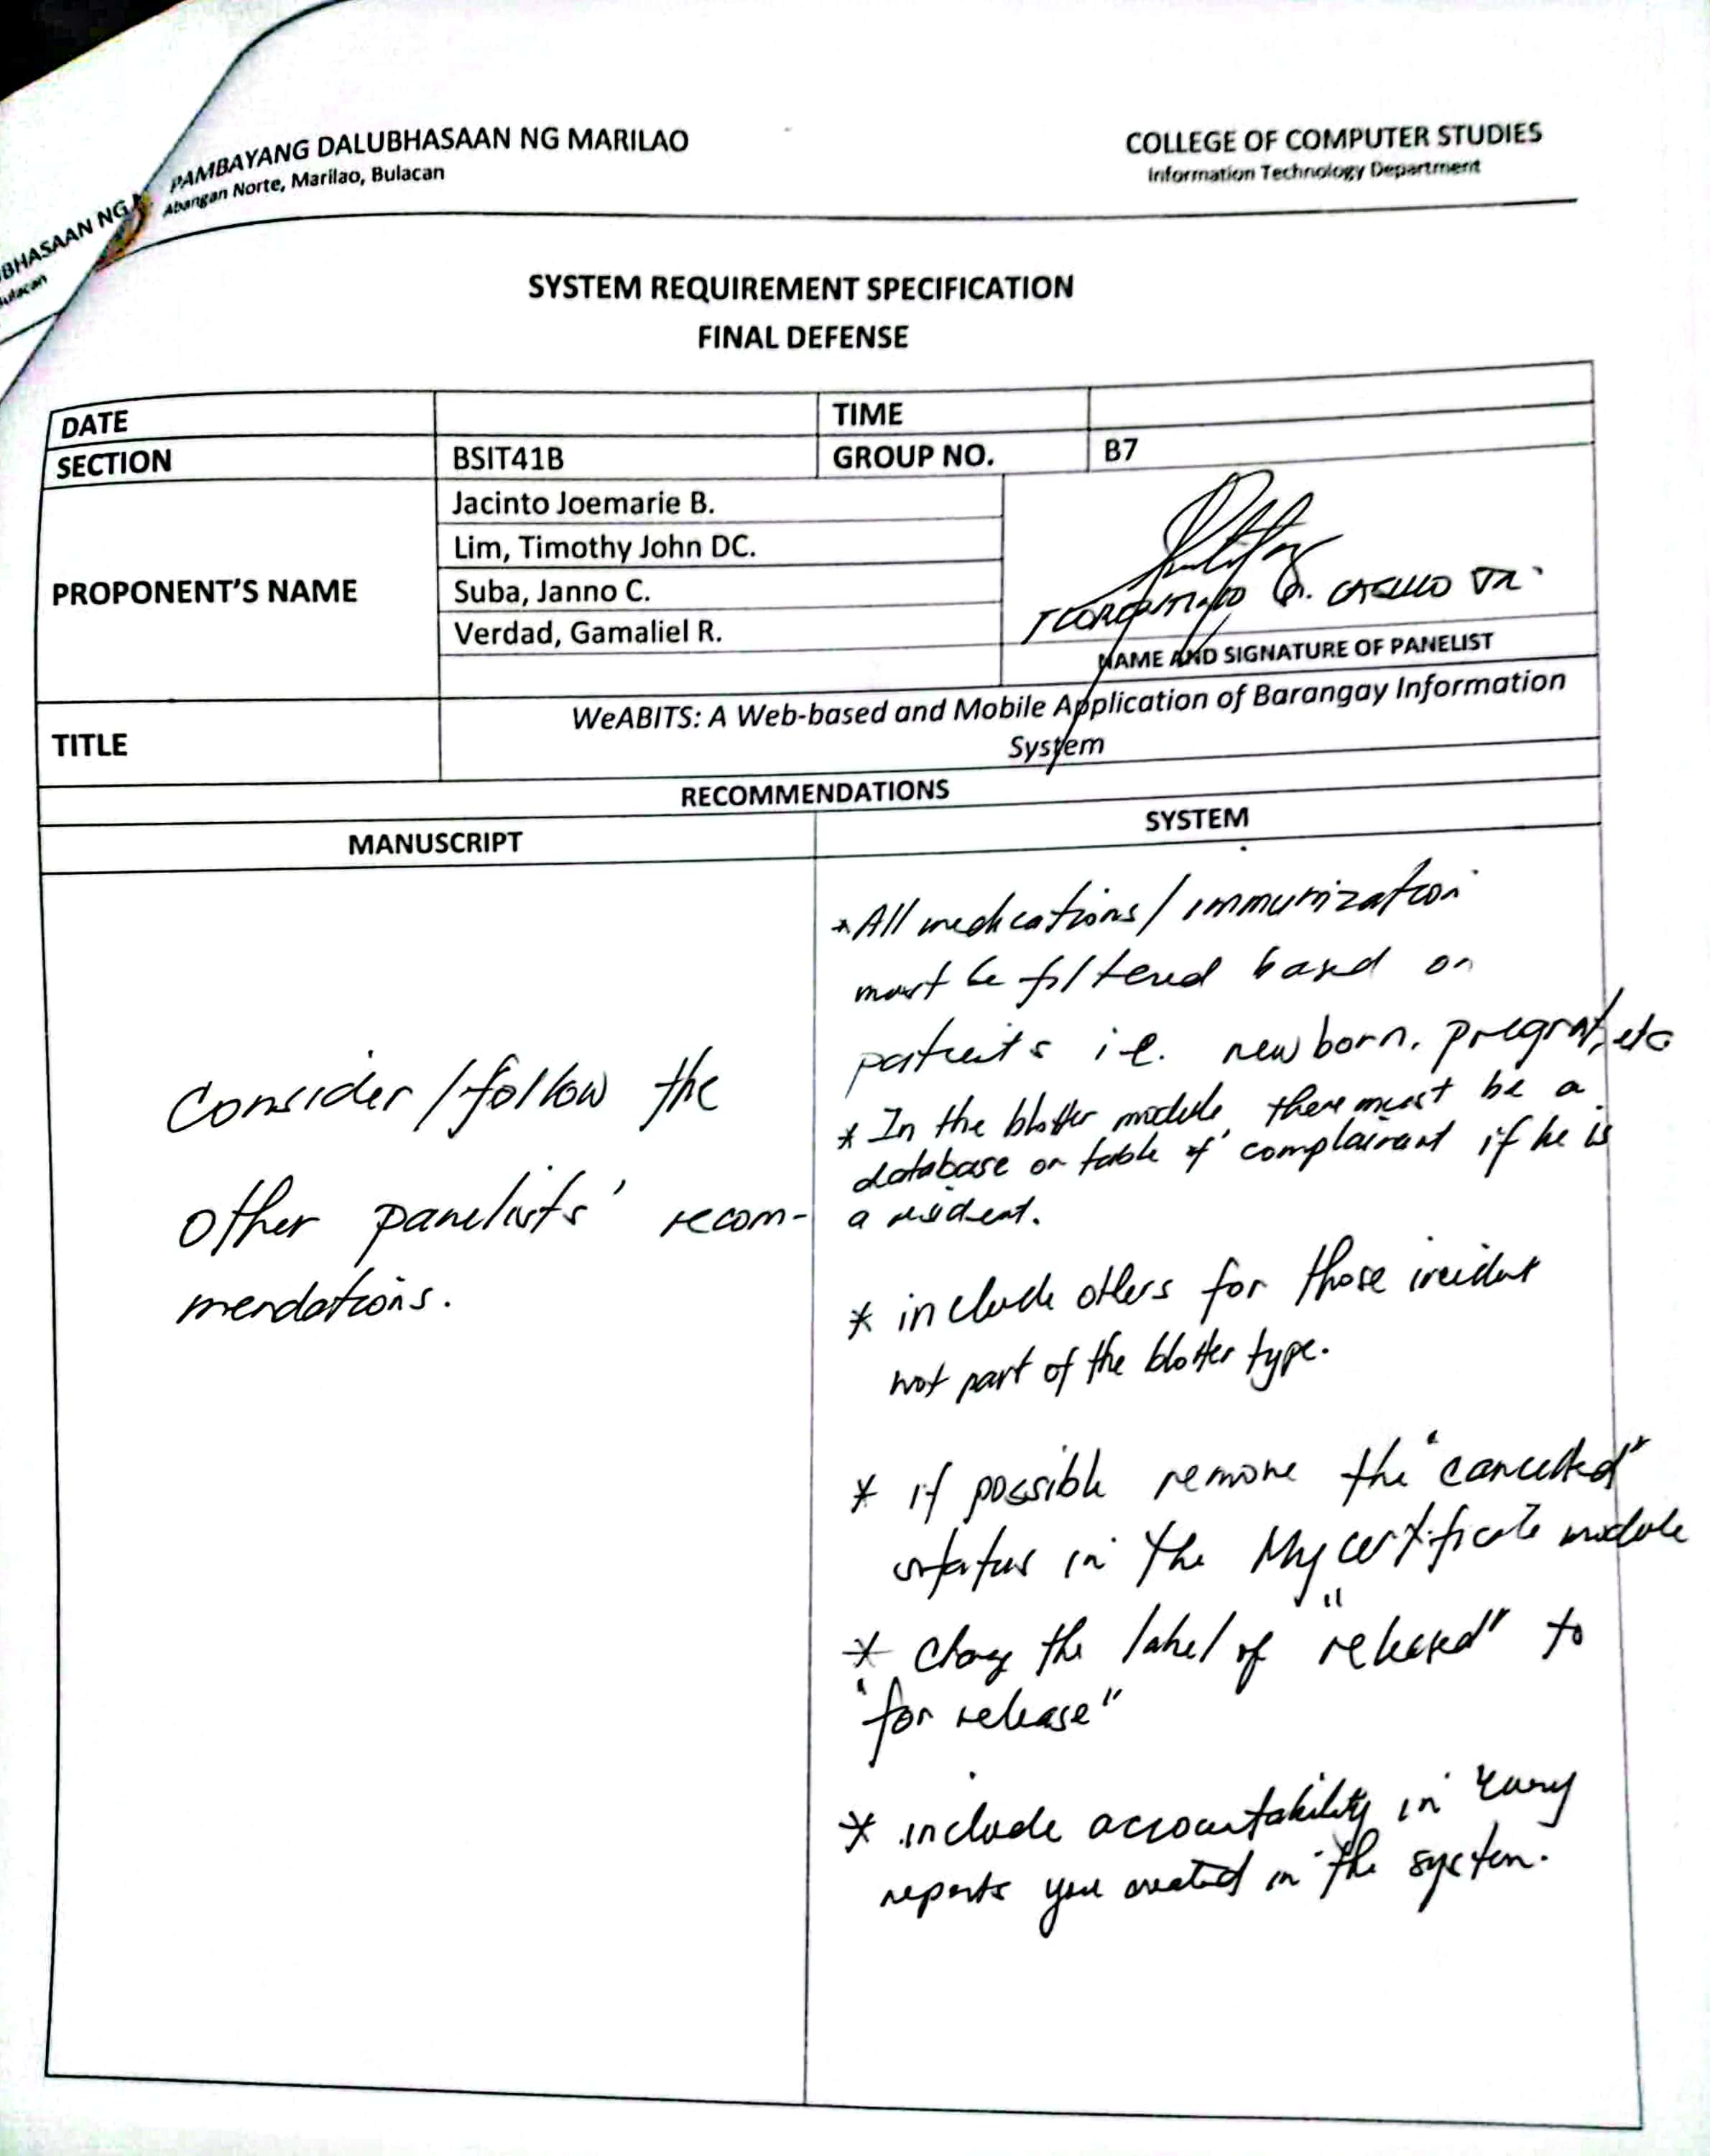 PAMBAYANG DALUBHASAAN NG MARILAO
Abangan Norte, Marilao, Bulacan
COLLEGE OF COMPUTER STUDIES
Information Technology Department
BHASAAN NG
Bulacan
SYSTEM REQUIREMENT SPECIFICATION
FINAL DEFENSE
DATE TIME
SECTION BSIT41B GROUP NO. B7
PROPONENT'S NAME
Jacinto Joemarie B.
Lim, Timothy John DC.
Suba, Janno C.
Verdad, Gamaliel R.
NAME AND SIGNATURE OF PANELIST
TITLE
WeABITS: A Web-based and Mobile Application of Barangay Information
System
RECOMMENDATIONS
MANUSCRIPT SYSTEM
Consider / follow the
other panelists' recom-
mendations.
* All medications / immunization
must be filtered based on
patients i.e. new born, pregnat, etc
* In the blotter module, there must be a
database or table of complainant if he is
a resident.
* include others for those incident
not part of the blotter type.
* if possible remove the "cancelled"
status in the My certificate module
* change the label of "released" to
"for release"
* include accountability in every
reports you created in the system.